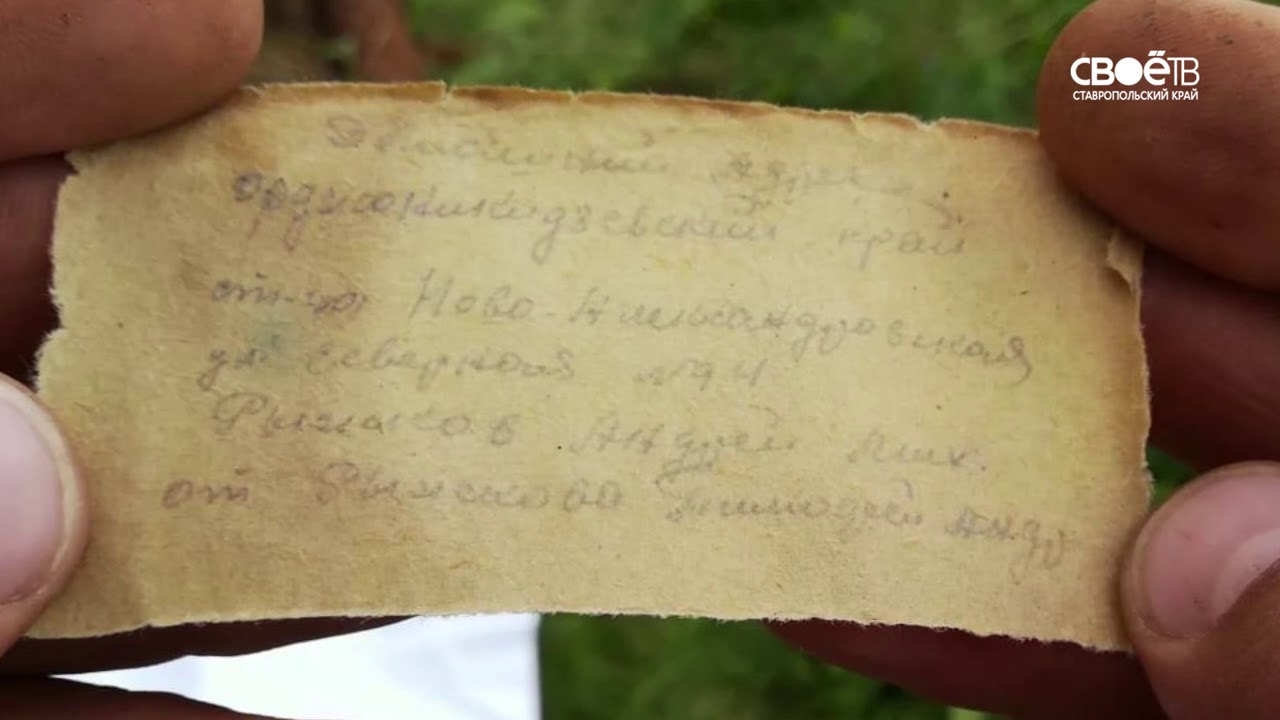 СВОЁТВ
СТАВРОПОЛЬСКИЙ КРАЙ
Домашний адрес
орджоникидзевский край
ст-ца Ново-Александровская
ул Северная №94
Рыжков Андрей Мих.
от Рыжкова Тимофей Андр